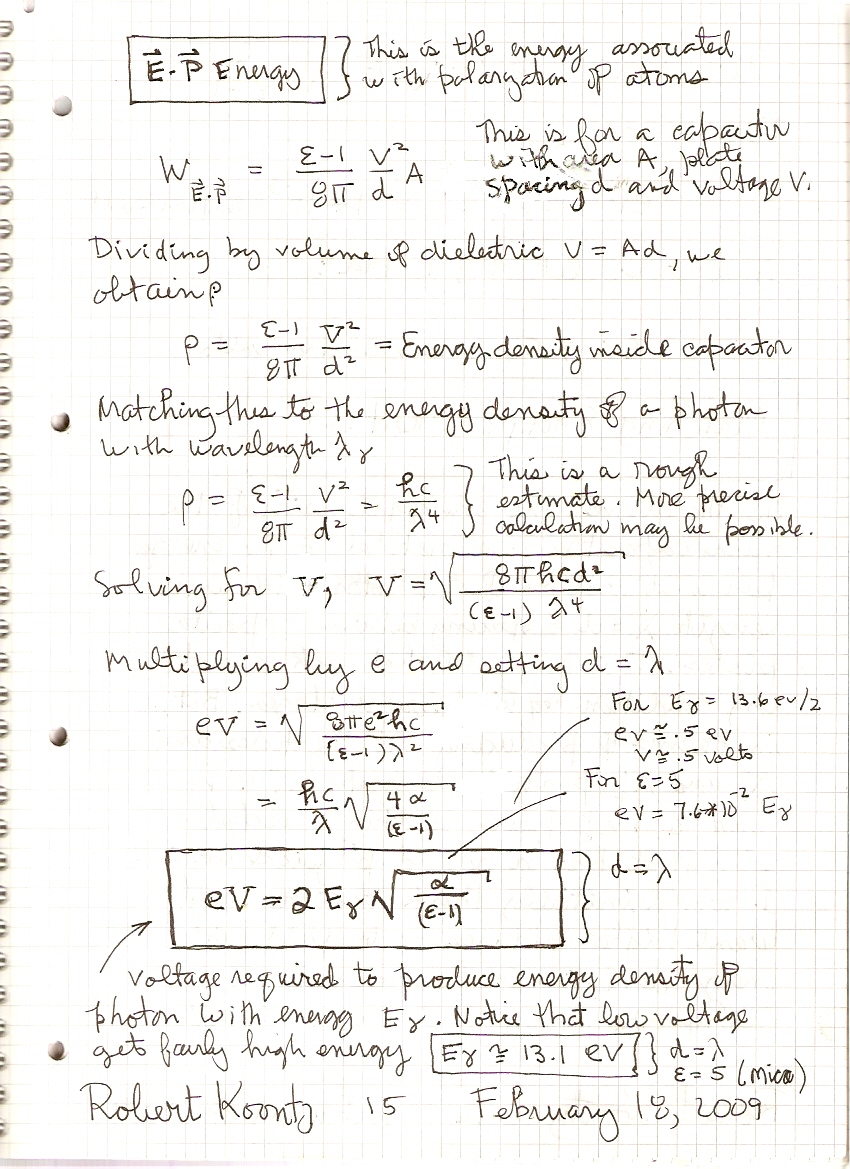 E⃗·P⃗ Energy } This is the energy associated
with polarization of atoms
W_E⃗·P⃗ = (ε-1)/8π V²/d A
This is for a capacitor
with area A, plate
spacing d and voltage V.
Dividing by volume of dielectric V = Ad, we
obtain ρ
ρ = (ε-1)/8π V²/d² = Energy density inside capacitor
Matching this to the energy density of a photon
with wavelength λγ
ρ = (ε-1)/8π V²/d² = hc/λ⁴ } This is a rough
estimate. More precise
calculation may be possible.
Solving for V, V = √(8πhcd²/((ε-1) λ⁴))
Multiplying by e and setting d = λ
eV = √(8πe²hc/((ε-1)λ²))
= hc/λ √(4α/(ε-1))
For Eγ = 13.6 ev/2
ev ≅ .5 ev
V ≅ .5 volts
For ε=5
eV = 7.6*10⁻² Eγ
eV = 2 Eγ √(α/(ε-1)) } d = λ
voltage required to produce energy density of
photon with energy Eγ. Notice that low voltage
gets fairly high energy Eγ ≅ 13.1 eV } d = λ
ε = 5 (mica)
Robert Koontz 15 February 18, 2009